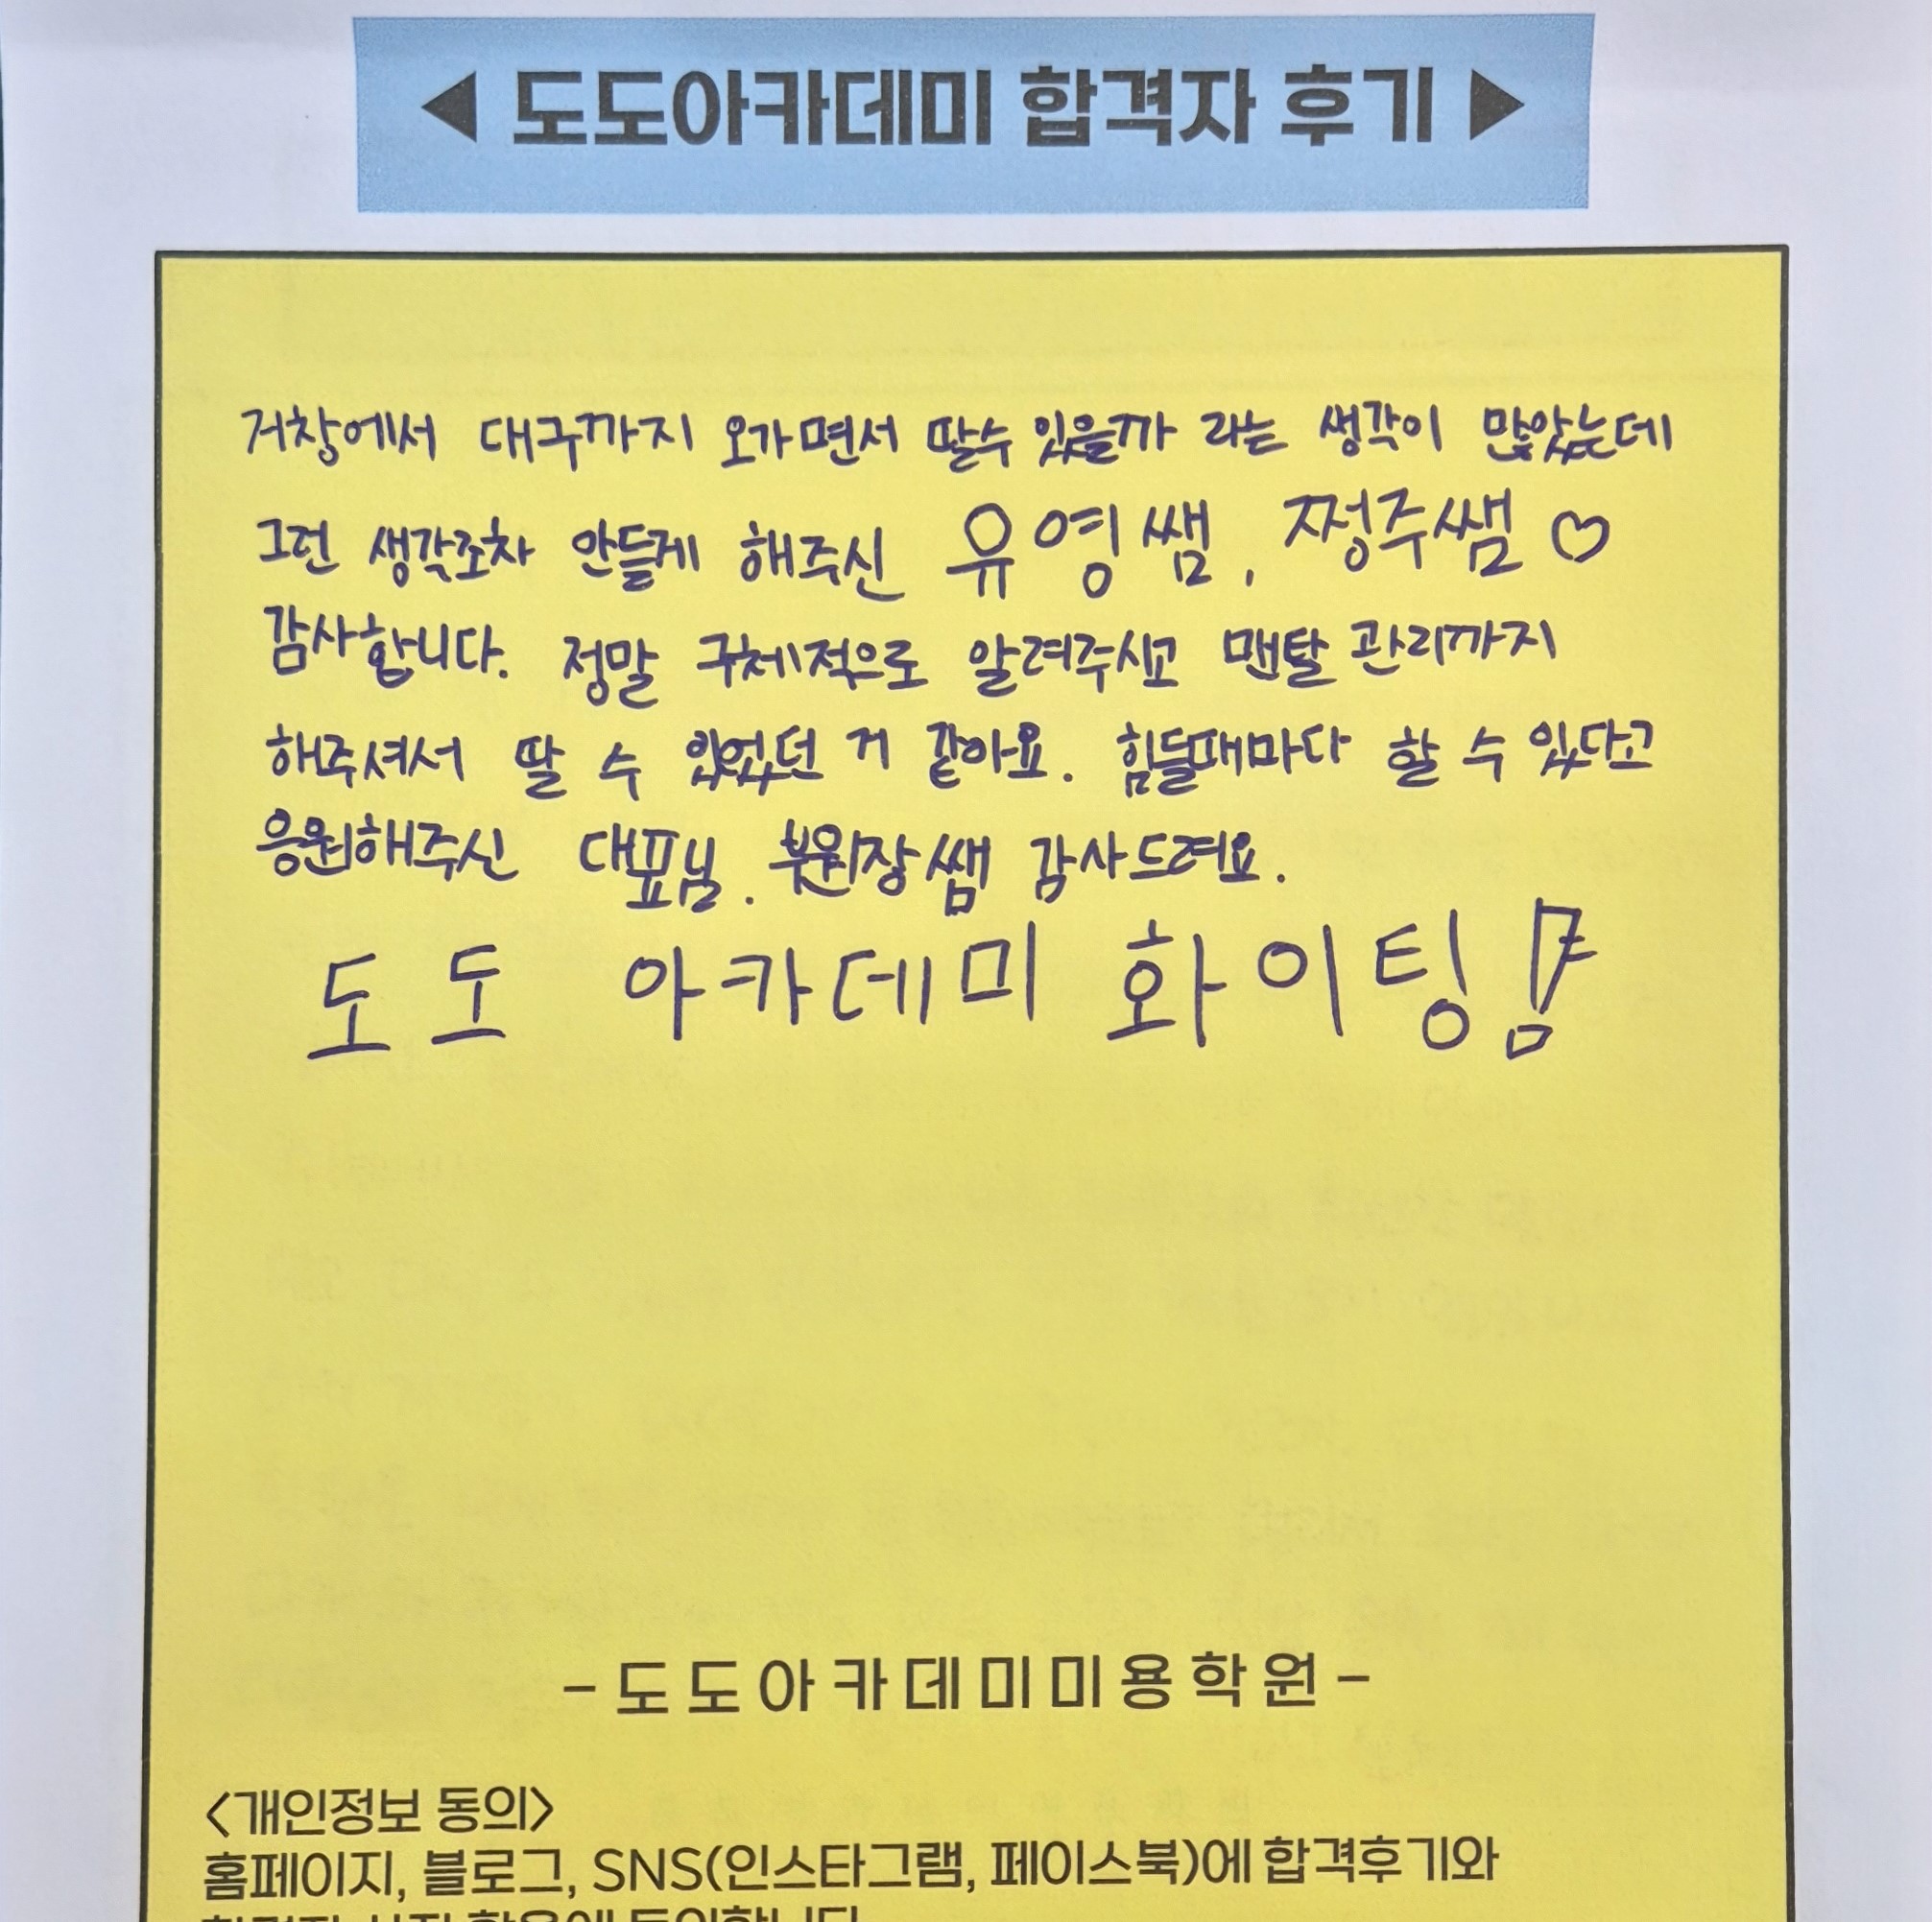 ◀ 도도아카데미 합격자 후기 ▶
거창에서 대구까지 오가면서 딸수 있을까 라는 생각이 많았는데
그런 생각조차 안들게 해주신 유영쌤, 쩡주쌤 ♡
감사합니다. 정말 구체적으로 알려주시고 맨탈 관리까지
해주셔서 딸 수 있었던 거 같아요. 힘들때마다 할 수 있다고
응원해주신 대표님. 부원장쌤 감사드려요.
도도 아카데미 화이팅!
- 도도아카데미미용학원 -
<개인정보 동의>
홈페이지, 블로그, SNS(인스타그램, 페이스북)에 합격후기와